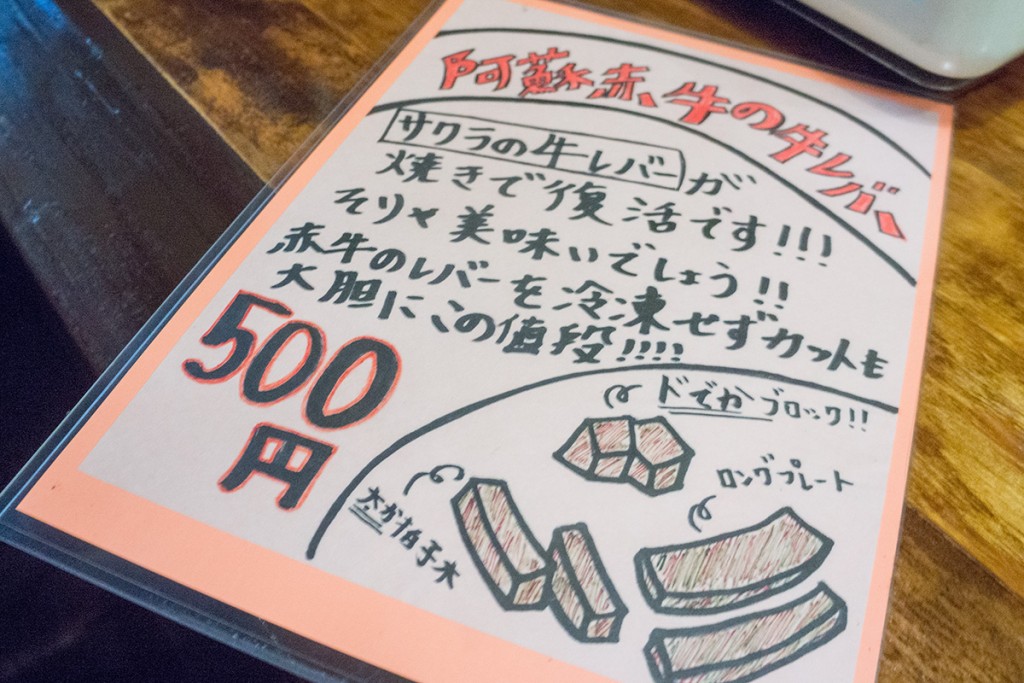 阿蘇赤牛の牛レバー
サクラの牛レバーが
焼きで復活です!!!
そりゃ美味いでしょう!!
赤牛のレバーを冷凍せずカットも
大胆にこの値段!!!!
500
円
ドでかブロック!!
ロングプレート
大か拍子木